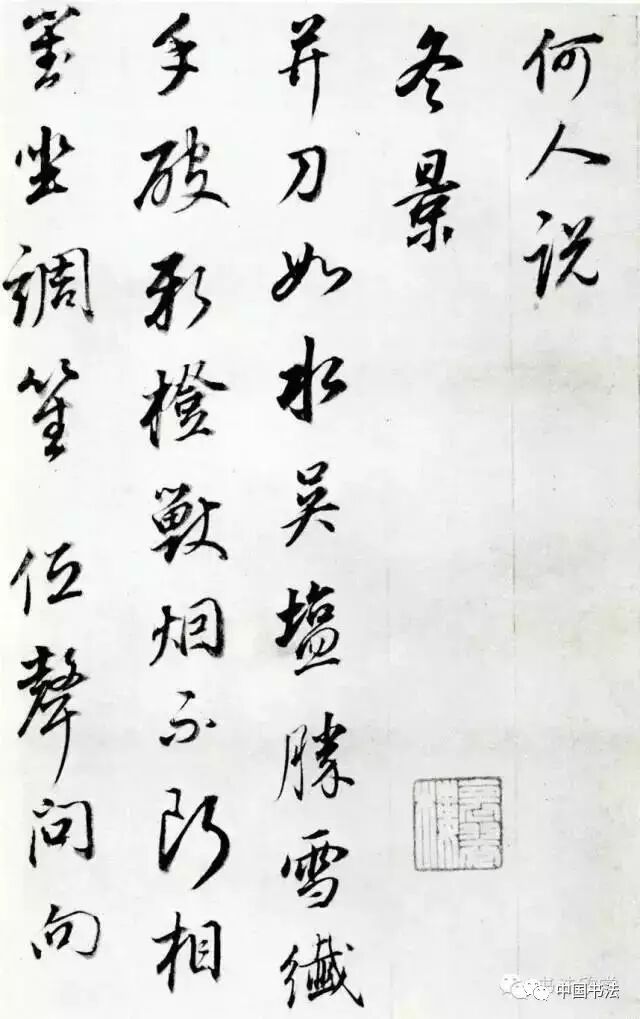 何人说
冬景
并刀如水吴塩勝雪纖
手破新橙獸烟不断相
對坐調笙 低聲問向
中国书法